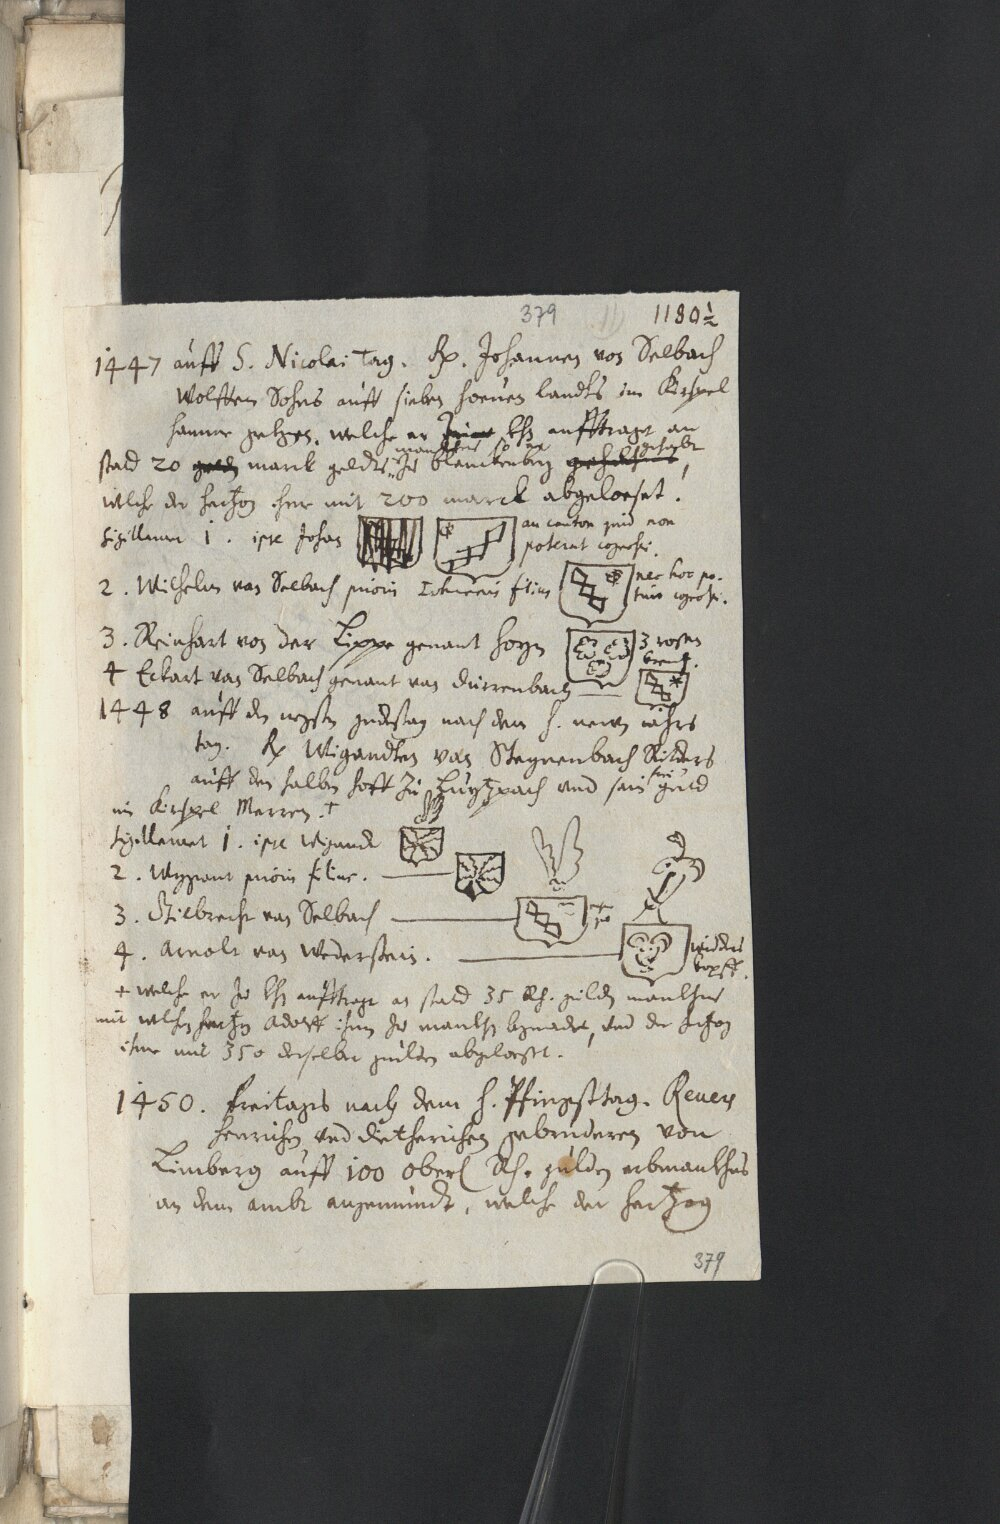 379 1180½
1447 auff S. Nicolai tag. Rp. Johannen von Selbach
Wolffen Sohns auff sieben hoeven landts im Kirspel
hamme gelegen, welche er seine Ehz aufftraget an
manlehens so er gehabt
stad 20 marck geldts zu blanckenberg,
welche der hertzog ihme mit 200 marck abgeloeset.
Sigillarunt 1. ipse Johan an canton quid non
poterat cognosci.
2. Wilhelm van Selbach prioris Johannis filius nec hoc po-
tuit cognosci.
3. Reinhart von der Lippe genant hoyn 3 rosen
4 Eckart van Selbach genant van Dürrenbach
1448 auff den negsten gudestag nach dem h. newen jahrs
tag. Rp Wigandten van Stegnenbach Ritters
auff den halben hoff zu Luytzpach und sein guld
im Kirspel Merren. +
Sigillarunt 1. ipse Wigandt
2. Wygant prioris filius.
3. Gilbrecht van Selbach
4. Arnolt van Wederstein. widders
kopff.
+ welche er zu Ehz aufftraget an stad 35 Rh. gulden manlehens
mit welchen hertzog Adolff ihnen zu manlehen begnadet, und der hertzog
ihme mit 350 derselber gulden abgeloeset.
1450. freitags nach dem h. Pfingsttag. Revers
henrichen und dietherichen gebruderen von
Limberg auff 100 oberl Rh. gulden erbmanlehens
an dem ambt angemündt, welche der hertzog
379